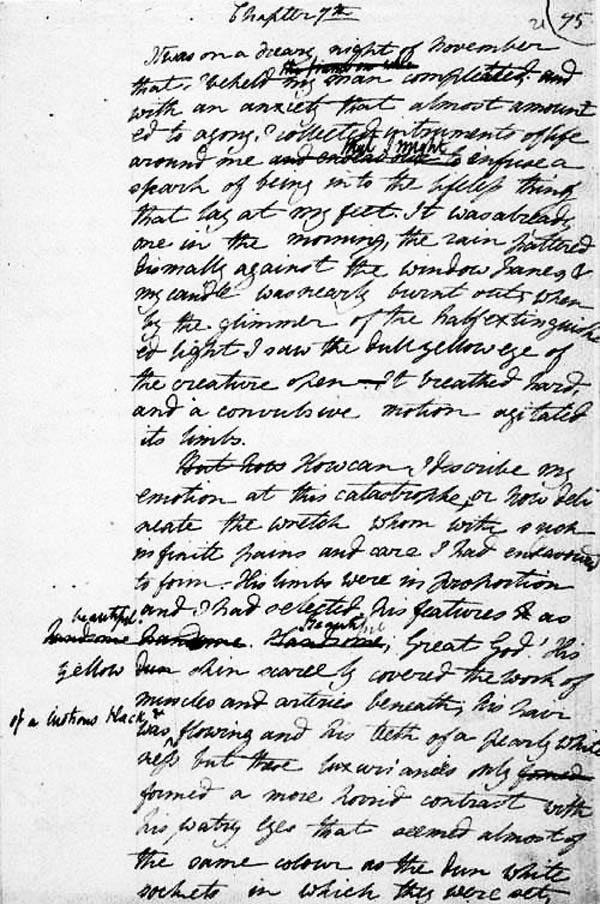 Chapter 7th
75
It was on a dreary night of November
that I beheld my man compleated; and
with an anxiety that almost amount
ed to agony, I collected instruments of life
around me that I might infuse a
spark of being into the lifeless thing
that lay at my feet. It was already
one in the morning, the rain pattered
dismally against the window panes, &
my candle was nearly burnt out, when
by the glimmer of the half extinguish
ed light I saw the dull yellow eye of
the creature open — It breathed hard,
and a convulsive motion agitated
its limbs.
But how How can I describe my
emotion at this catastrophe, or how deli
neate the wretch whom with such
infinite pains and care I had endeavoured
to form. His limbs were in proportion
and I had selected his features as
beautiful. beautiful
handsome handsome. Handsome; Great God! His
yellow dun skin scarcely covered the work of
muscles and arteries beneath; his hair
of a lustrous black, &
was flowing and his teeth of a pearly white
ness but these luxuriances only formed
formed a more horrid contrast with
his watry eyes that seemed almost of
the same colour as the dun white
sockets in which they were set,